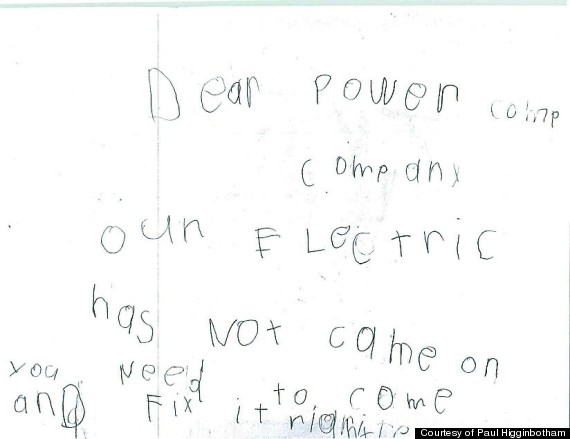 Dear power comp
company
our Electric
has not came on
you need to come
and Fix it
Courtesy of Paul Higginbotham